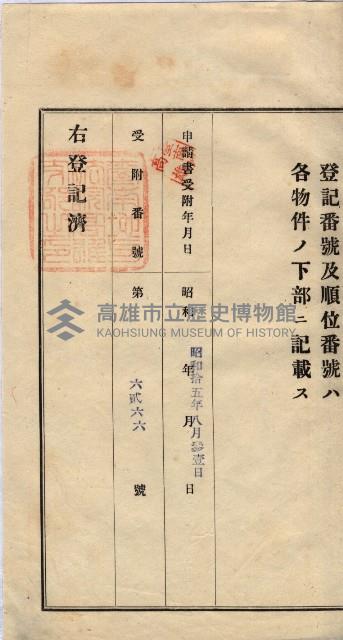 登記番號及順位番號ハ
各物件ノ下部ニ記載ス
申請書受附年月日 昭和 年 月 日
昭和拾五年八月參壹日
受附番號 第 六貳六六 號
右登記濟
高雄市立歷史博物館
KAOHSIUNG MUSEUM OF HISTORY